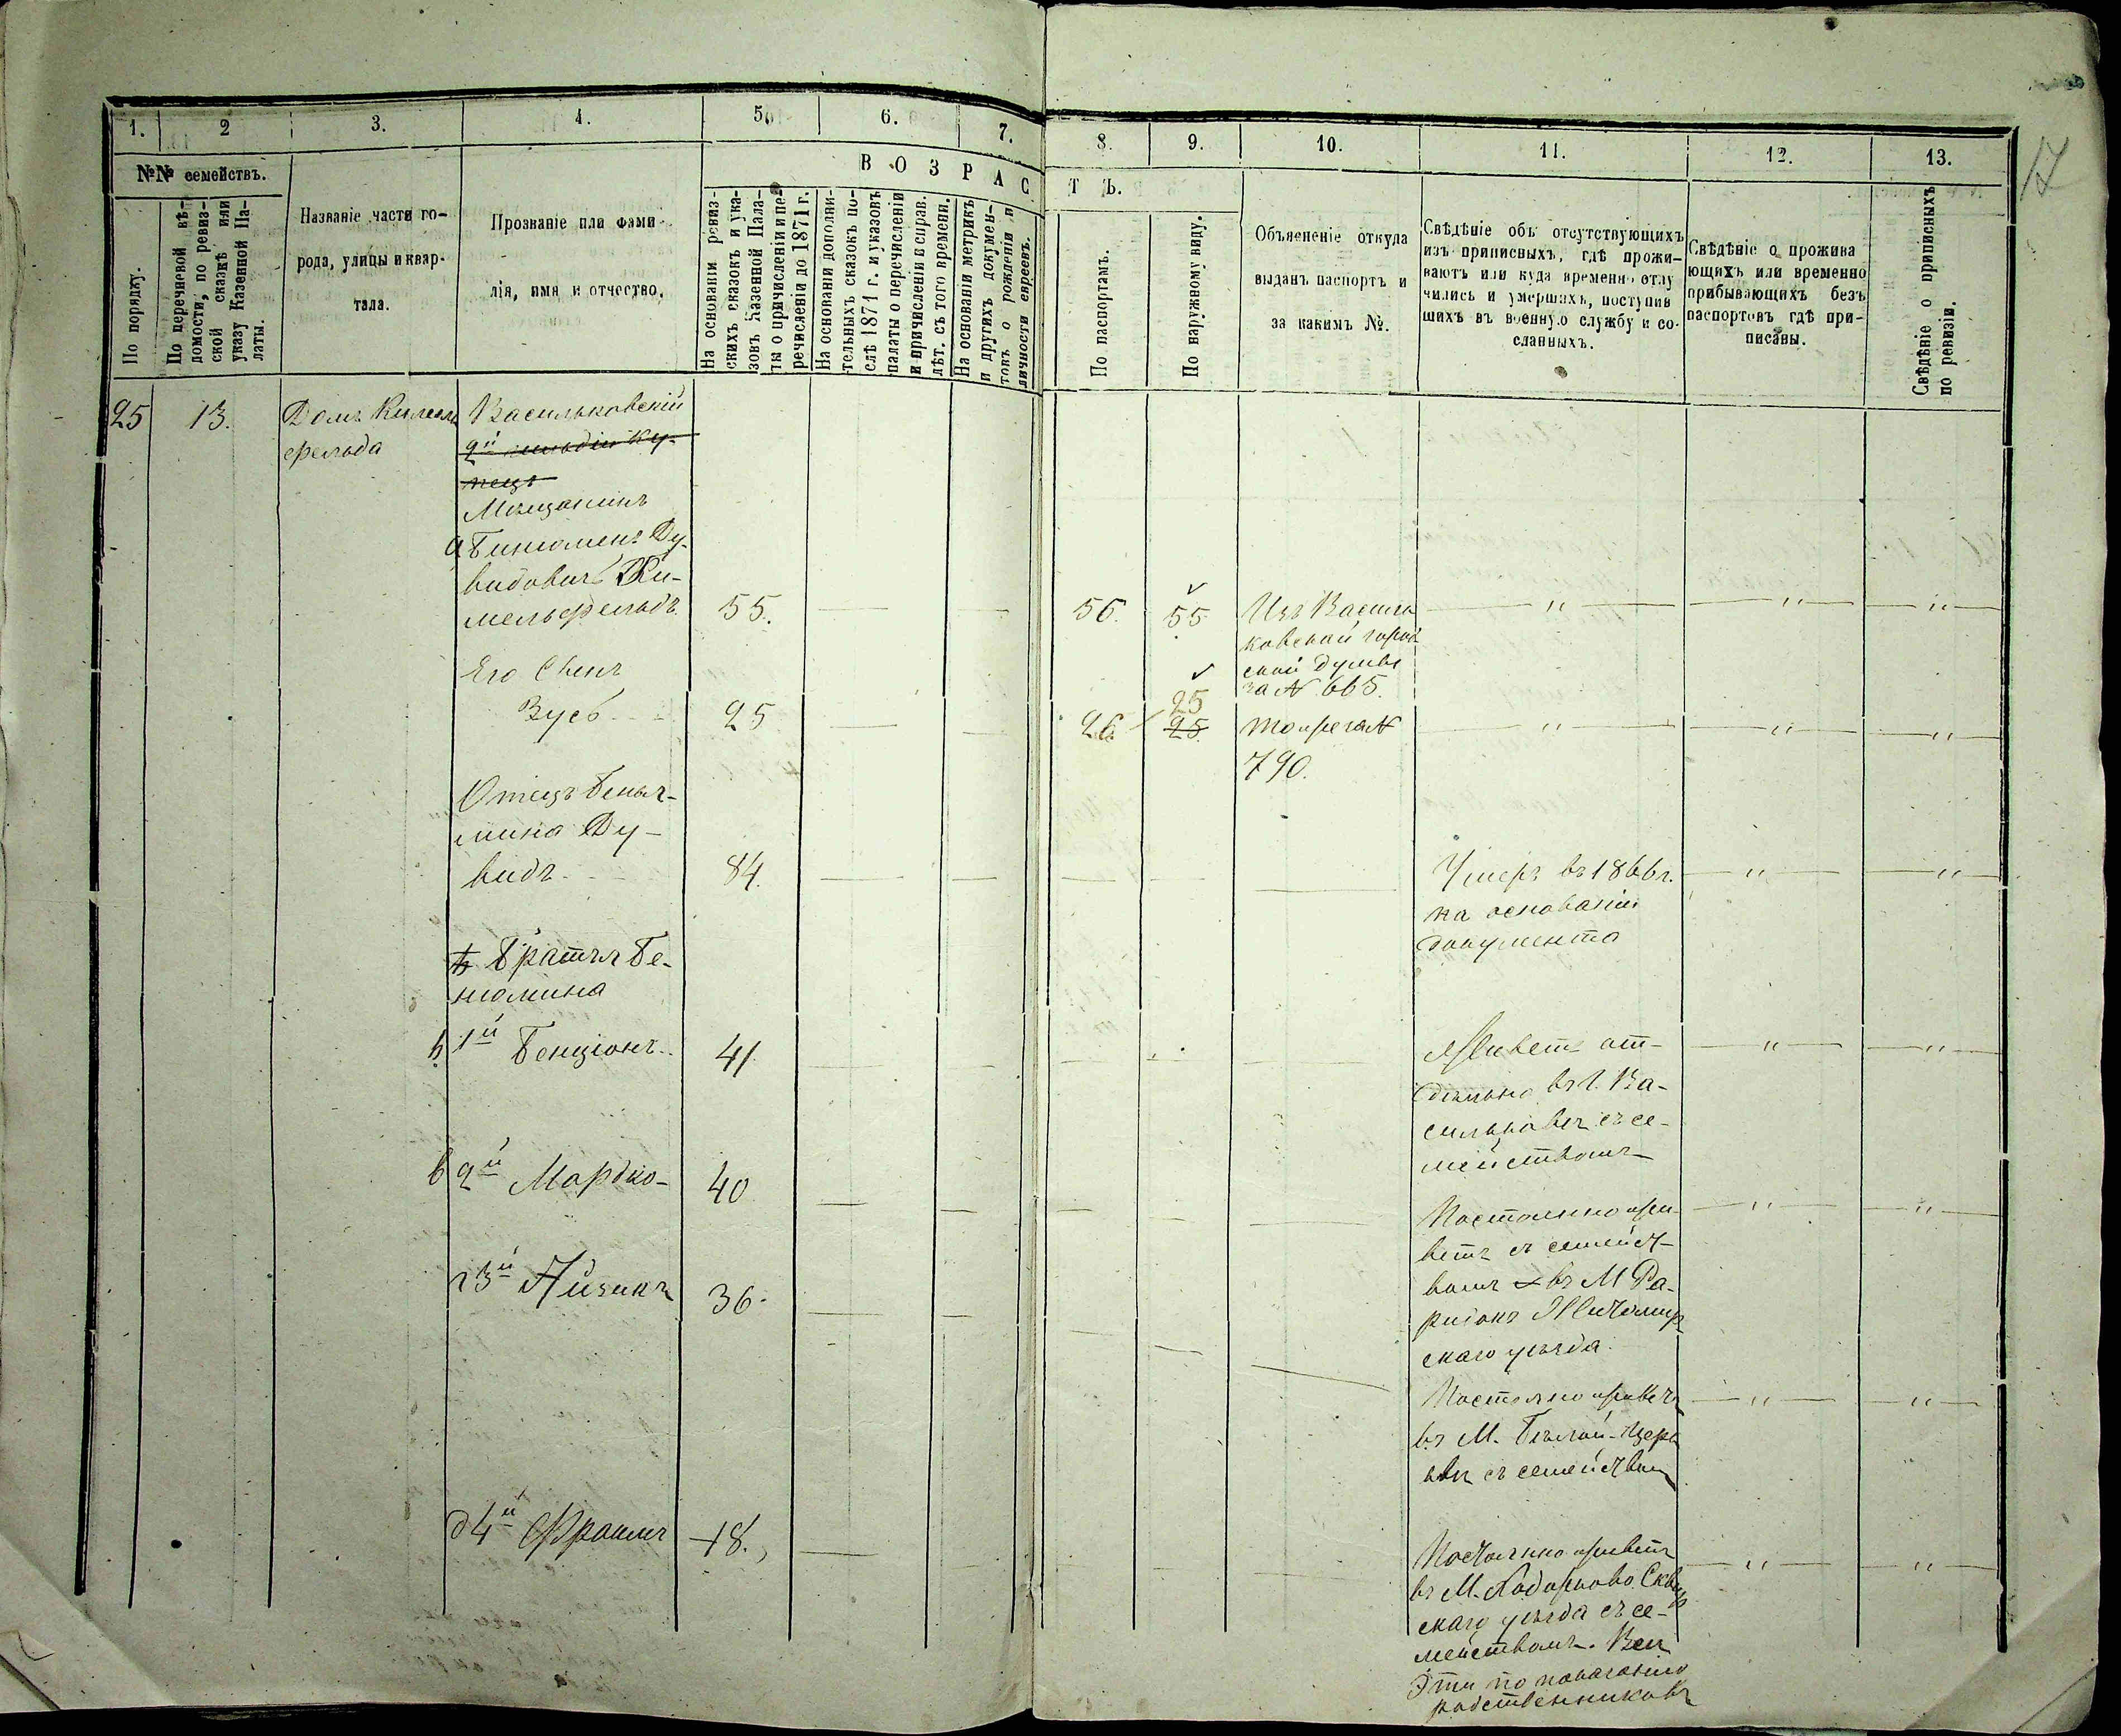 1.
2
3.
4.
5.
6.
7.
8.
9.
10.
11.
12.
13.
17
№№ семействъ.
ВОЗРАСТЪ.
По порядку.
По перечневой вѣ-
домости, по ревиз-
ской сказкѣ или
указу Казенной Па-
латы.
Названіе части го-
рода, улицы и квар-
тала.
Прозваніе или фами-
лія, имя и отчество.
На основаніи ревиз-
скихъ сказокъ и ука-
зовъ Казенной Пала-
ты о причисленіи и пе-
речисленіи до 1871 г.
На основаніи дополни-
тельныхъ сказокъ по-
слѣ 1871 г. и указовъ
палаты о перечисленіи
и причисленіи и справ.
лѣт. съ того времени.
На основаніи метрикъ
и другихъ докумен-
товъ о рожденіи и
личности евреевъ.
По паспортамъ.
По наружному виду.
Объясненіе откуда
выданъ паспортъ и
за какимъ №.
Свѣдѣніе объ отсутствующихъ
изъ приписныхъ, гдѣ прожи-
ваютъ или куда временно отлу
чились и умершихъ, поступив
шихъ въ военную службу и со-
сланныхъ.
Свѣдѣніе о прожива
ющихъ или временно
прибывающихъ безъ
паспортовъ гдѣ при-
писаны.
Свѣдѣніе о приписныхъ
по ревизіи.
25
13.
Домъ Кимель
фельда
Васильковскій
2й гильдіи ку-
пецъ
Мѣщанинъ
а Биньоминъ Ду-
видовичъ Ки-
мельфельдъ
55.
56.
55
Изъ Василь
ковской город
ской думы
за № 665.
Его Сынъ
Зусь
25
26
25
25
тоже за №
790.
Отецъ Бенья-
мина Ду-
видъ
84.
Умеръ въ 1866 г.
на основаніи
документа
Братья Бе-
ньомина
1й Бенціонъ
41
Живетъ от-
дѣльно въ г. Ва-
сильковѣ съ се-
мействомъ
в 2й Мордко
40
Постоянно жи-
ветъ съ семейст-
вомъ въ М.
Житомир
скаго уѣзда.
г 3й Айзикъ
36.
Постоянно живетъ
въ М. Бѣлой-Церк
вѣ съ семействомъ
д 4й Фроимъ
18.
Постоянно живетъ
въ М. Ходорково Сквир
скаго уѣзда съ се-
мействомъ. Всѣ
Эти по показанію
родственниковъ